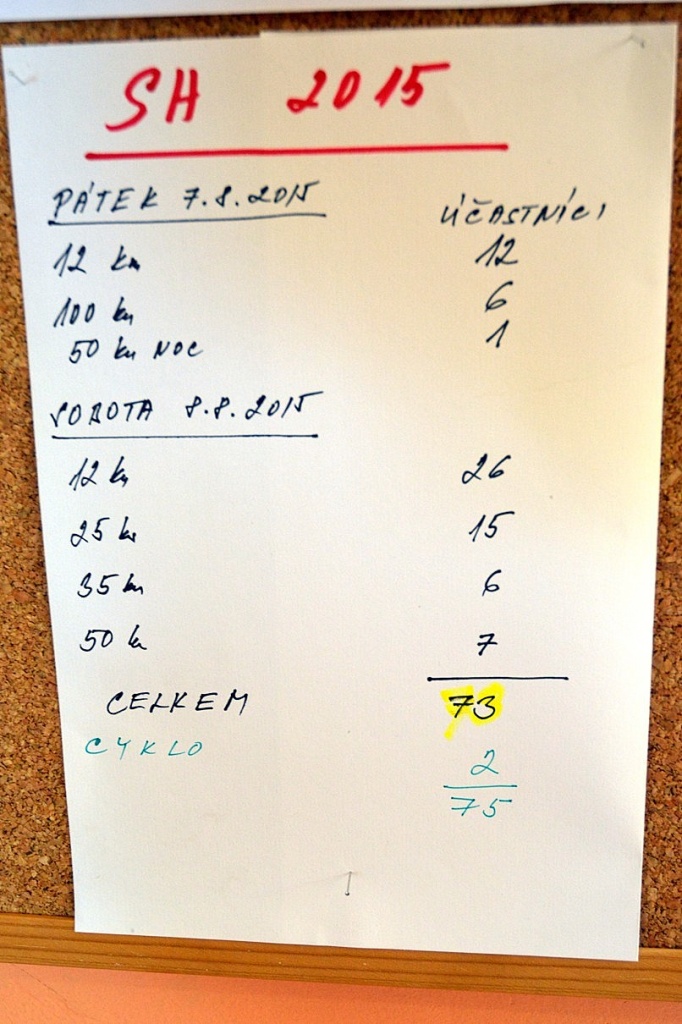 SH 2015
PÁTEK 7.8.2015 ÚČASTNÍCI
12 km 12
100 km 6
50 km NOC 1
SOBOTA 8.8.2015
12 km 26
25 km 15
35 km 6
50 km 7
CELKEM 73
CYKLO 2
75